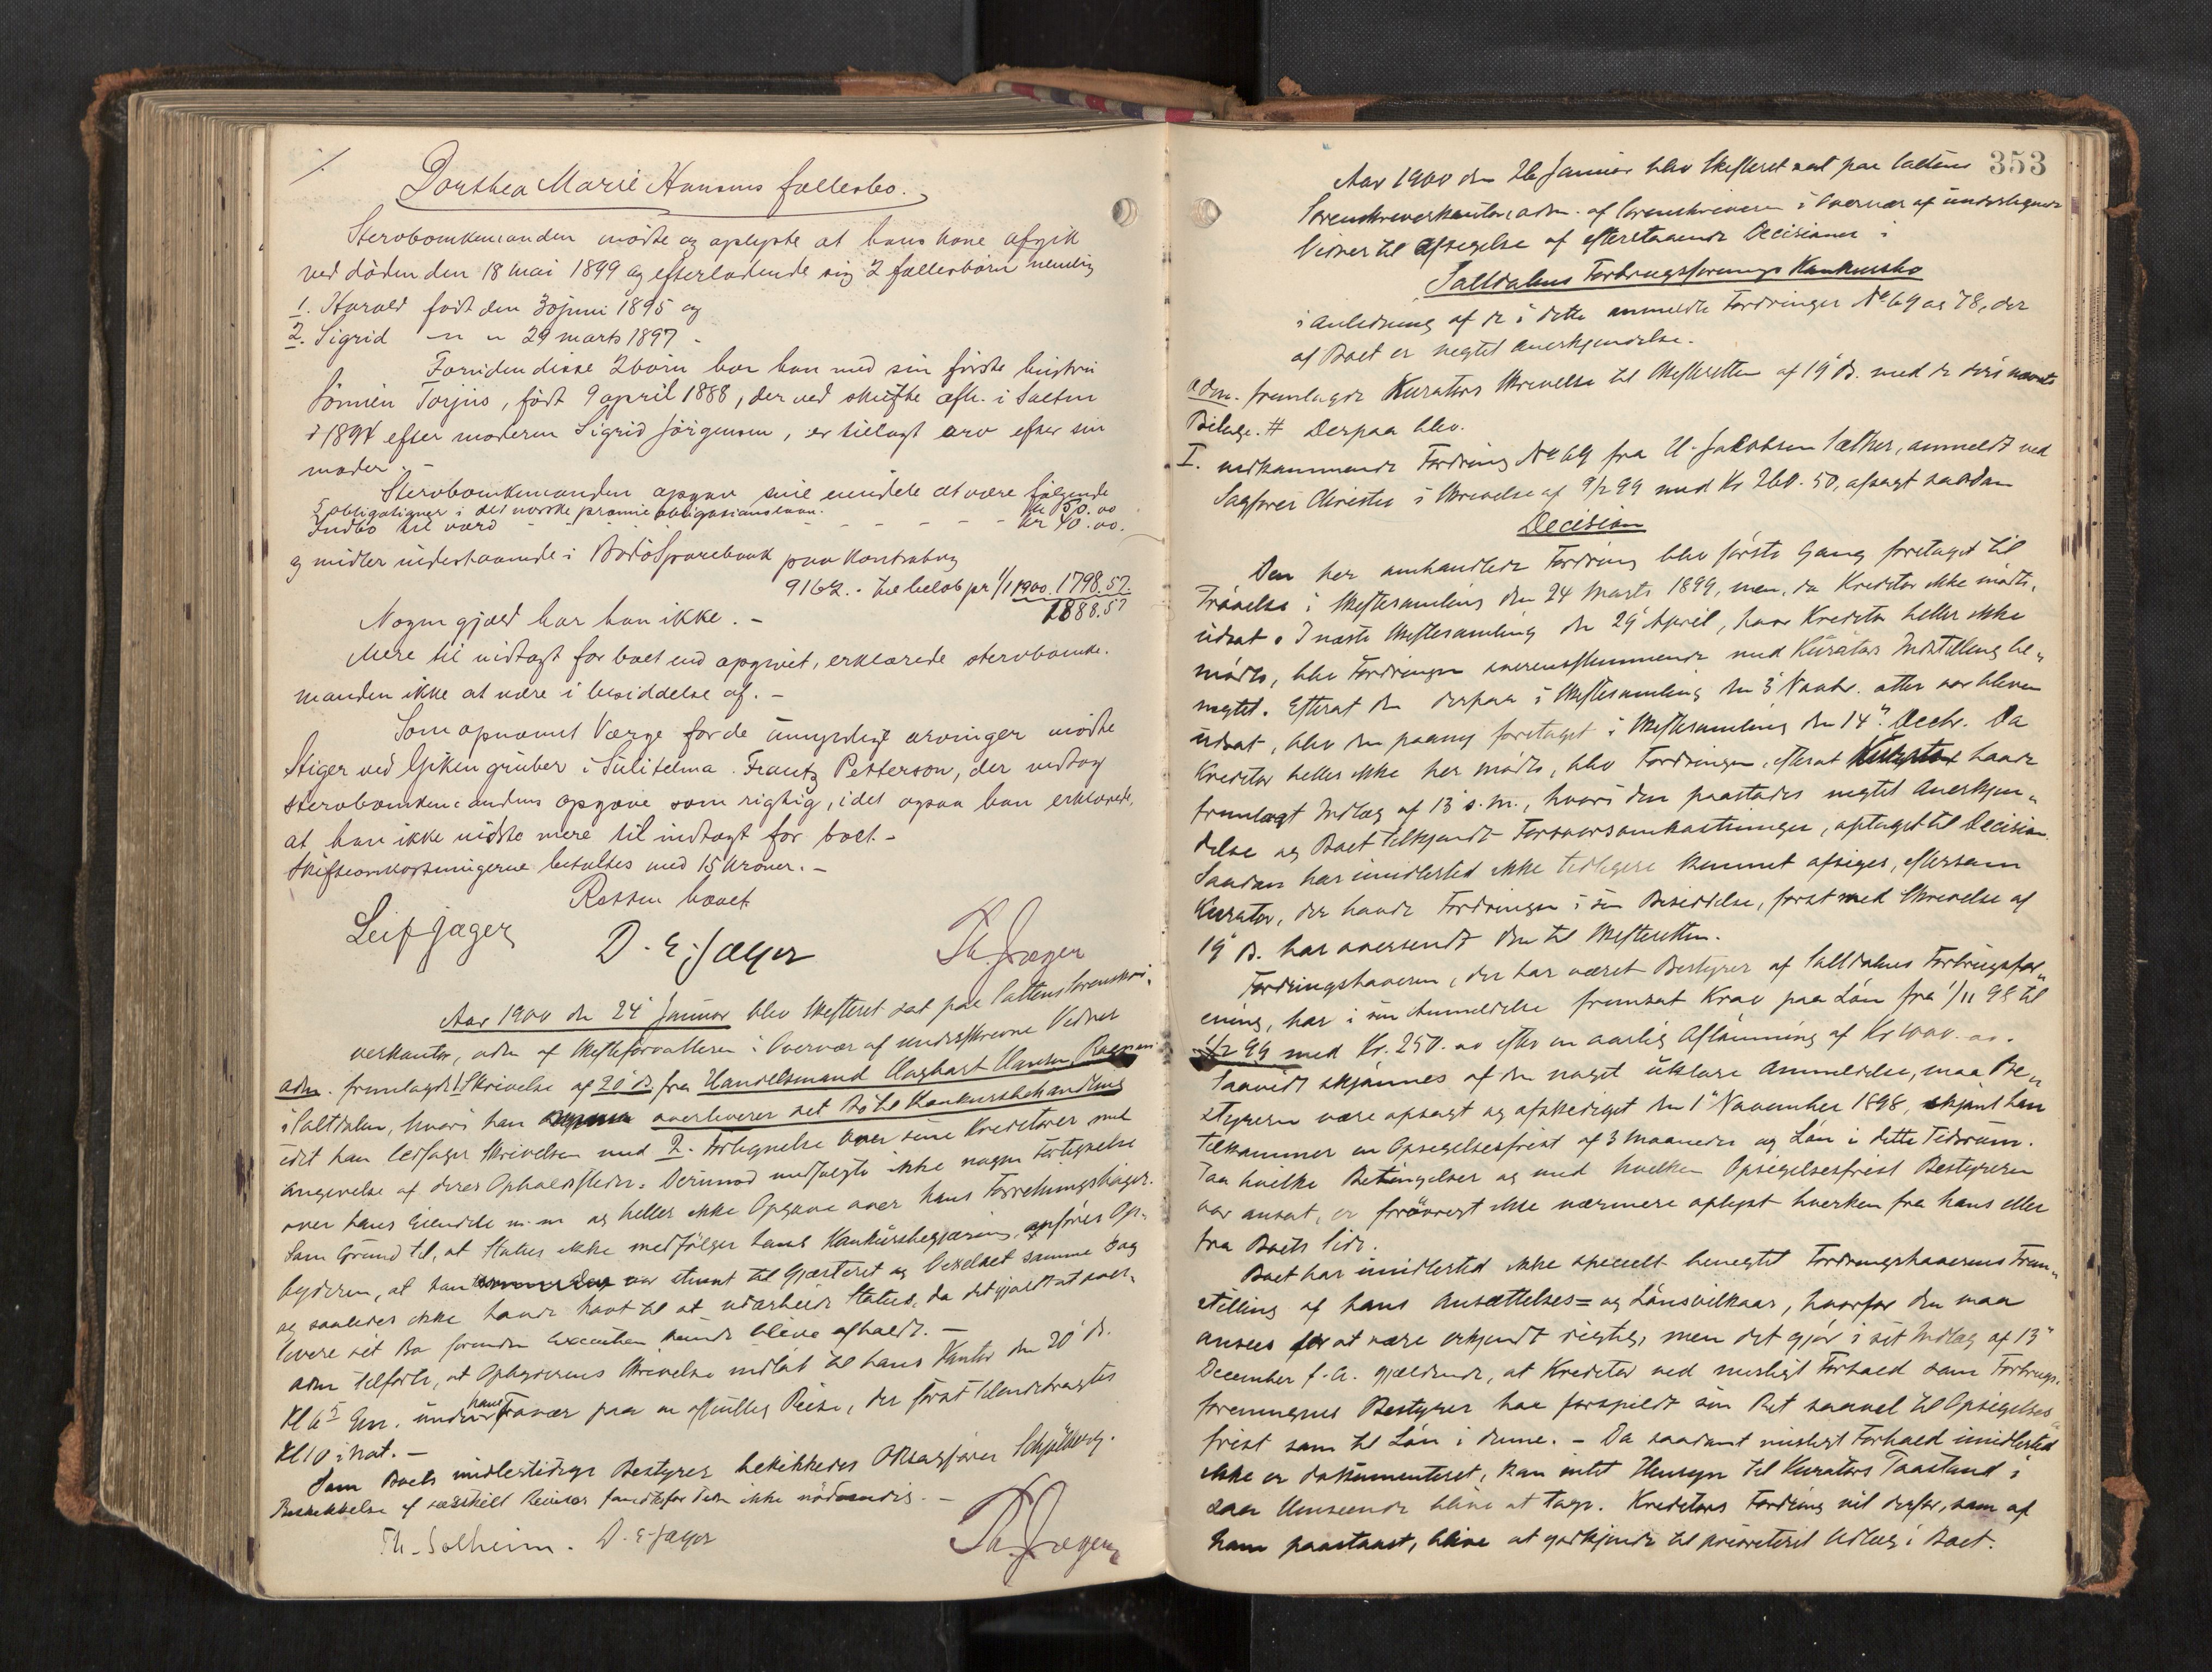 Dorthea Marie Hansens fællesbo.
Stervboenkemanden mødte og oplyste at hans kone afgik
ved døden den 18 mai 1899 og efterladende sig 2 fællesbørn nemlig
1. Harald født den 30 juni 1895 og
2. Sigrid " " 29 marts 1897 -
Foruden disse 2 børn har han med sin første hustru
Sønnen Torjus, født 9 april 1888, der ved skifte afh. i Salten
1891 efter moderen Sigrid Jørgensen, er tillagt arv efter sin
moder. -
Stervboenkemanden opgav sine eiendele at være følgende
5 obligationer i det norske præmieobligationslaan. kr 50.00
Indbo til værd - - - - - - - - kr 40.00.
og midler indestaaende i Bodø Sparebank paa Kontrabog
9162. - til beløb pr 1/1 1900. 1798.57.
1888.57
Nogen gjæld har han ikke. -
Mere til indtægt for boet end opgivet, erklærede stervboenke-
manden ikke at være i besiddelse af. -
Som opnævnt Værge for de umyndige arvinger mødte
Stiger ved Giken gruber i Sulitelma Frantz Petterson, der vedtog
stervboenkemandens opgave som rigtig, idet ogsaa han erklærede,
at han ikke vidste mere til indtægt for boet. -
Skifteomkostningerne betaltes med 15 kroner. -
Retten hævet
Leif Jæger D. E. Jæger Th. Jæger
Aar 1900 den 24' Januar blev Skifteret sat paa Saltens Sorenskri-
verkontor, adm. af Skifteforvalteren i Overvær af underskrevne Vidner
Adm. fremlagde 1 Skrivelse af 20' ds. fra Handelsmand Hagbart Hansen, Rognan
i Saltdalen, hvori han overleverer sit Bo til Konkursbehandling
idet han ledsager Skrivelsen med 2. Fortegnelse over sine Kreditorer med
Angivelse af deres Opholdssteder. Derimod medfulgte ikke nogen Fortegnelse
over hans Eiendele m. m. og heller ikke Opgave over hans Forretningsbøger.
Som Grund til, at Status ikke medfølger hans Konkursbegjæring, anføres Op-
byderen, at han var stevnt til Gjæsteret og Vexelret samme Dag
og saaledes ikke havde havt Tid til at udarbeide Status, da det gjaldt at over-
levere sit Bo forinden Execution kunde blive afholdt. -
Adm tilførte, at Opbyderens Skrivelse indløb til hans Kontor den 20' ds.
Kl 6 5 Em. under hans Fravær paa en offentlig Reise, der først tilendebragtes
Kl 10 i Nat. -
Som Boets midlertidige Bestyrer beskikkedes ORsagfører Schjølberg.
Beskikkelse af særskilt Revisor fandtes for Tiden ikke nødvendig. -
Th. Solheim. D. E. Jæger Th. Jæger
353
Aar 1900 den 26 Januar blev Skifteret sat paa Saltens
Sorenskriverkontor, adm. af Sorenskriveren i Overvær af undertegnede
Vidner til Afsigelse af efterstaaende Decisioner i
Saltdalens Forbrugsforenings Konkursbo
i Anledning af de i dette anmeldte Fordringer No 69 og 78, der
af Boet er negtet Anerkjendelse.
Adm. fremlagde Kurators Skrivelse til Skifteretten af 19' ds. med de deri nævnte
Bilage. # Derpaa blev.
I. vedkommende Fordring No 69 fra U. Jakobsen Sæther, anmeldt ved
Sagfører Christie i Skrivelse af 9/2 99 med Kr 260.50, afsagt saadan
Decision
Den her omhandlede Fordring blev første Gang foretaget til
Prøvelse i Skiftesamling den 24 Marts 1899, men, da Kreditor ikke mødte,
udsat. I næste Skiftesamling den 29' April, hvor Kreditor heller ikke
mødte, blev Fordringen overensstemmende med Kurators Indstilling be-
negtet. Efterat den derpaa i Skiftesamling den 3' Novbr. atter var bleven
udsat, blev den paany foretaget i Skiftesamling den 14' Decbr. Da
Kreditor heller ikke her mødte, blev Fordringen, efterat Kurator havde
fremlagt Indlæg af 13' s. m., hvori den paastodes negtet Anerkjen-
delse og Boet tilkjendt Forsvarsomkostninger, optaget til Decision.
Saadan har imidlertid ikke tidligere kunnet afsiges, eftersom
Kurator, der havde Fordringen i sin Besiddelse, først med Skrivelse af
19' ds. har oversendt den til Skifteretten.
Fordringshaveren, der har været Bestyrer af Saltdalens Forbrugsfor-
ening, har i sin Anmeldelse fremsat Krav paa Løn fra 1/11 98 til
1/2 99 med Kr. 250.00 efter en aarlig Aflønning af Kr 1000.00.
Saavidt skjønnes af den noget uklare Anmeldelse, maa Be-
styreren være opsagt og afskediget den 1' November 1898, skjønt han
tilkommer en Opsigelsesfrist af 3 Maaneder og Løn i dette Tidsrum.
Paa hvilke Betingelser og med hvilken Opsigelsesfrist Bestyreren
var ansat, er forøvrigt ikke nærmere oplyst hverken fra hans eller
fra Boets Side.
Boet har imidlertid ikke specielt benegtet Fordringshaverens Frem-
stilling af hans Ansættelses= og Lønsvilkaar, hvorfor den maa
ansees for at være erkjendt rigtig, men det gjør i sit Indlæg af 13'
December f. A. gjældende, at Kreditor ved misligt Forhold som Forbrugs-
foreningens Bestyrer har forspildt sin Ret saavel til Opsigelses-
frist som til Løn i denne. - Da saadant misligt Forhold imidlertid
ikke er dokumenteret, kan intet Hensyn til Kurators Paastand i
saa Henseende blive at tage. Kreditors Fordring vil derfor, som af
ham paastaaet, blive at godkjende til prioriteret Udlæg i Boet.